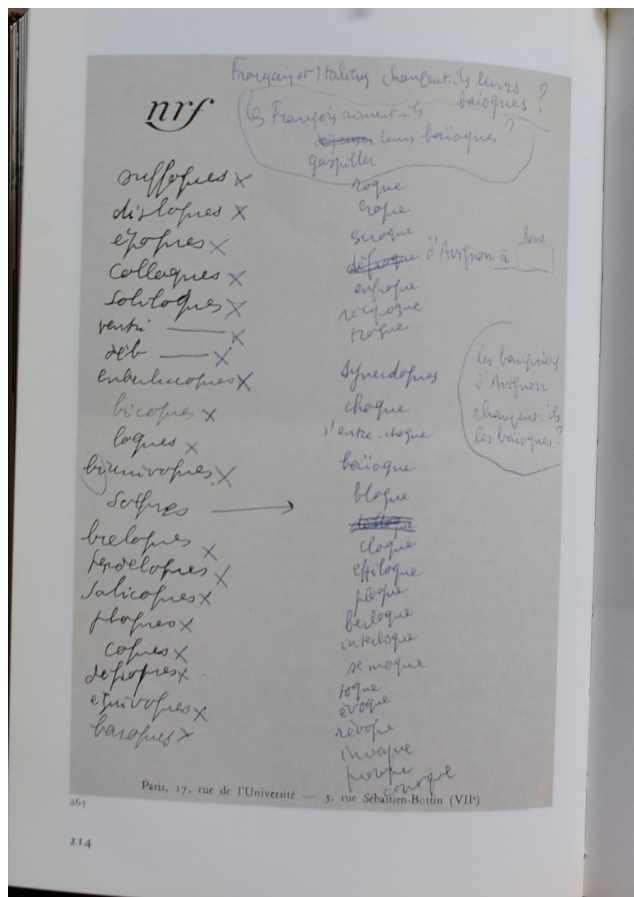 Français et Italiens changent-ils leurs
baïoques ?
nrf
les Français aiment-ils
leurs baïoques ?
gaspiller
suffoques x
disloques x
époques x
colloques x
soliloques x
ventri — x
déb — x
emberlucoques x
bicoques x
loques x
biunivoques x
socques →
breloques x
pendeloques x
salicoques x
ploques x
coques x
défroques x
équivoques x
baroques x
roque
croque
escroque
défroque d'Avignon à Rome
enfroque
réciproque
troque
synecdoques
choque
s'entre-choque
baïoque
bloque
cloque
effiloque
ploque
berloque
interloque
se moque
toque
évoque
révoque
invoque
provoque
convoque
les banquiers
d'Avignon
changent-ils
les baïoques ?
Paris, 17, rue de l'Université — 5, rue Sébastien-Bottin (VIIe)
265
214